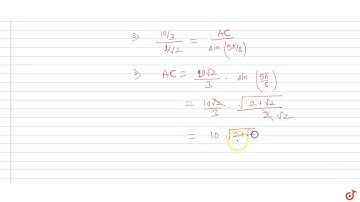 ⇒ (10/3)/(1/√2) = AC/(sin(5π/8))
⇒ AC = (10√2)/3 · sin(5π/8)
= (10√2)/3 · √(2+√2)/(2
= 10 √(2+√